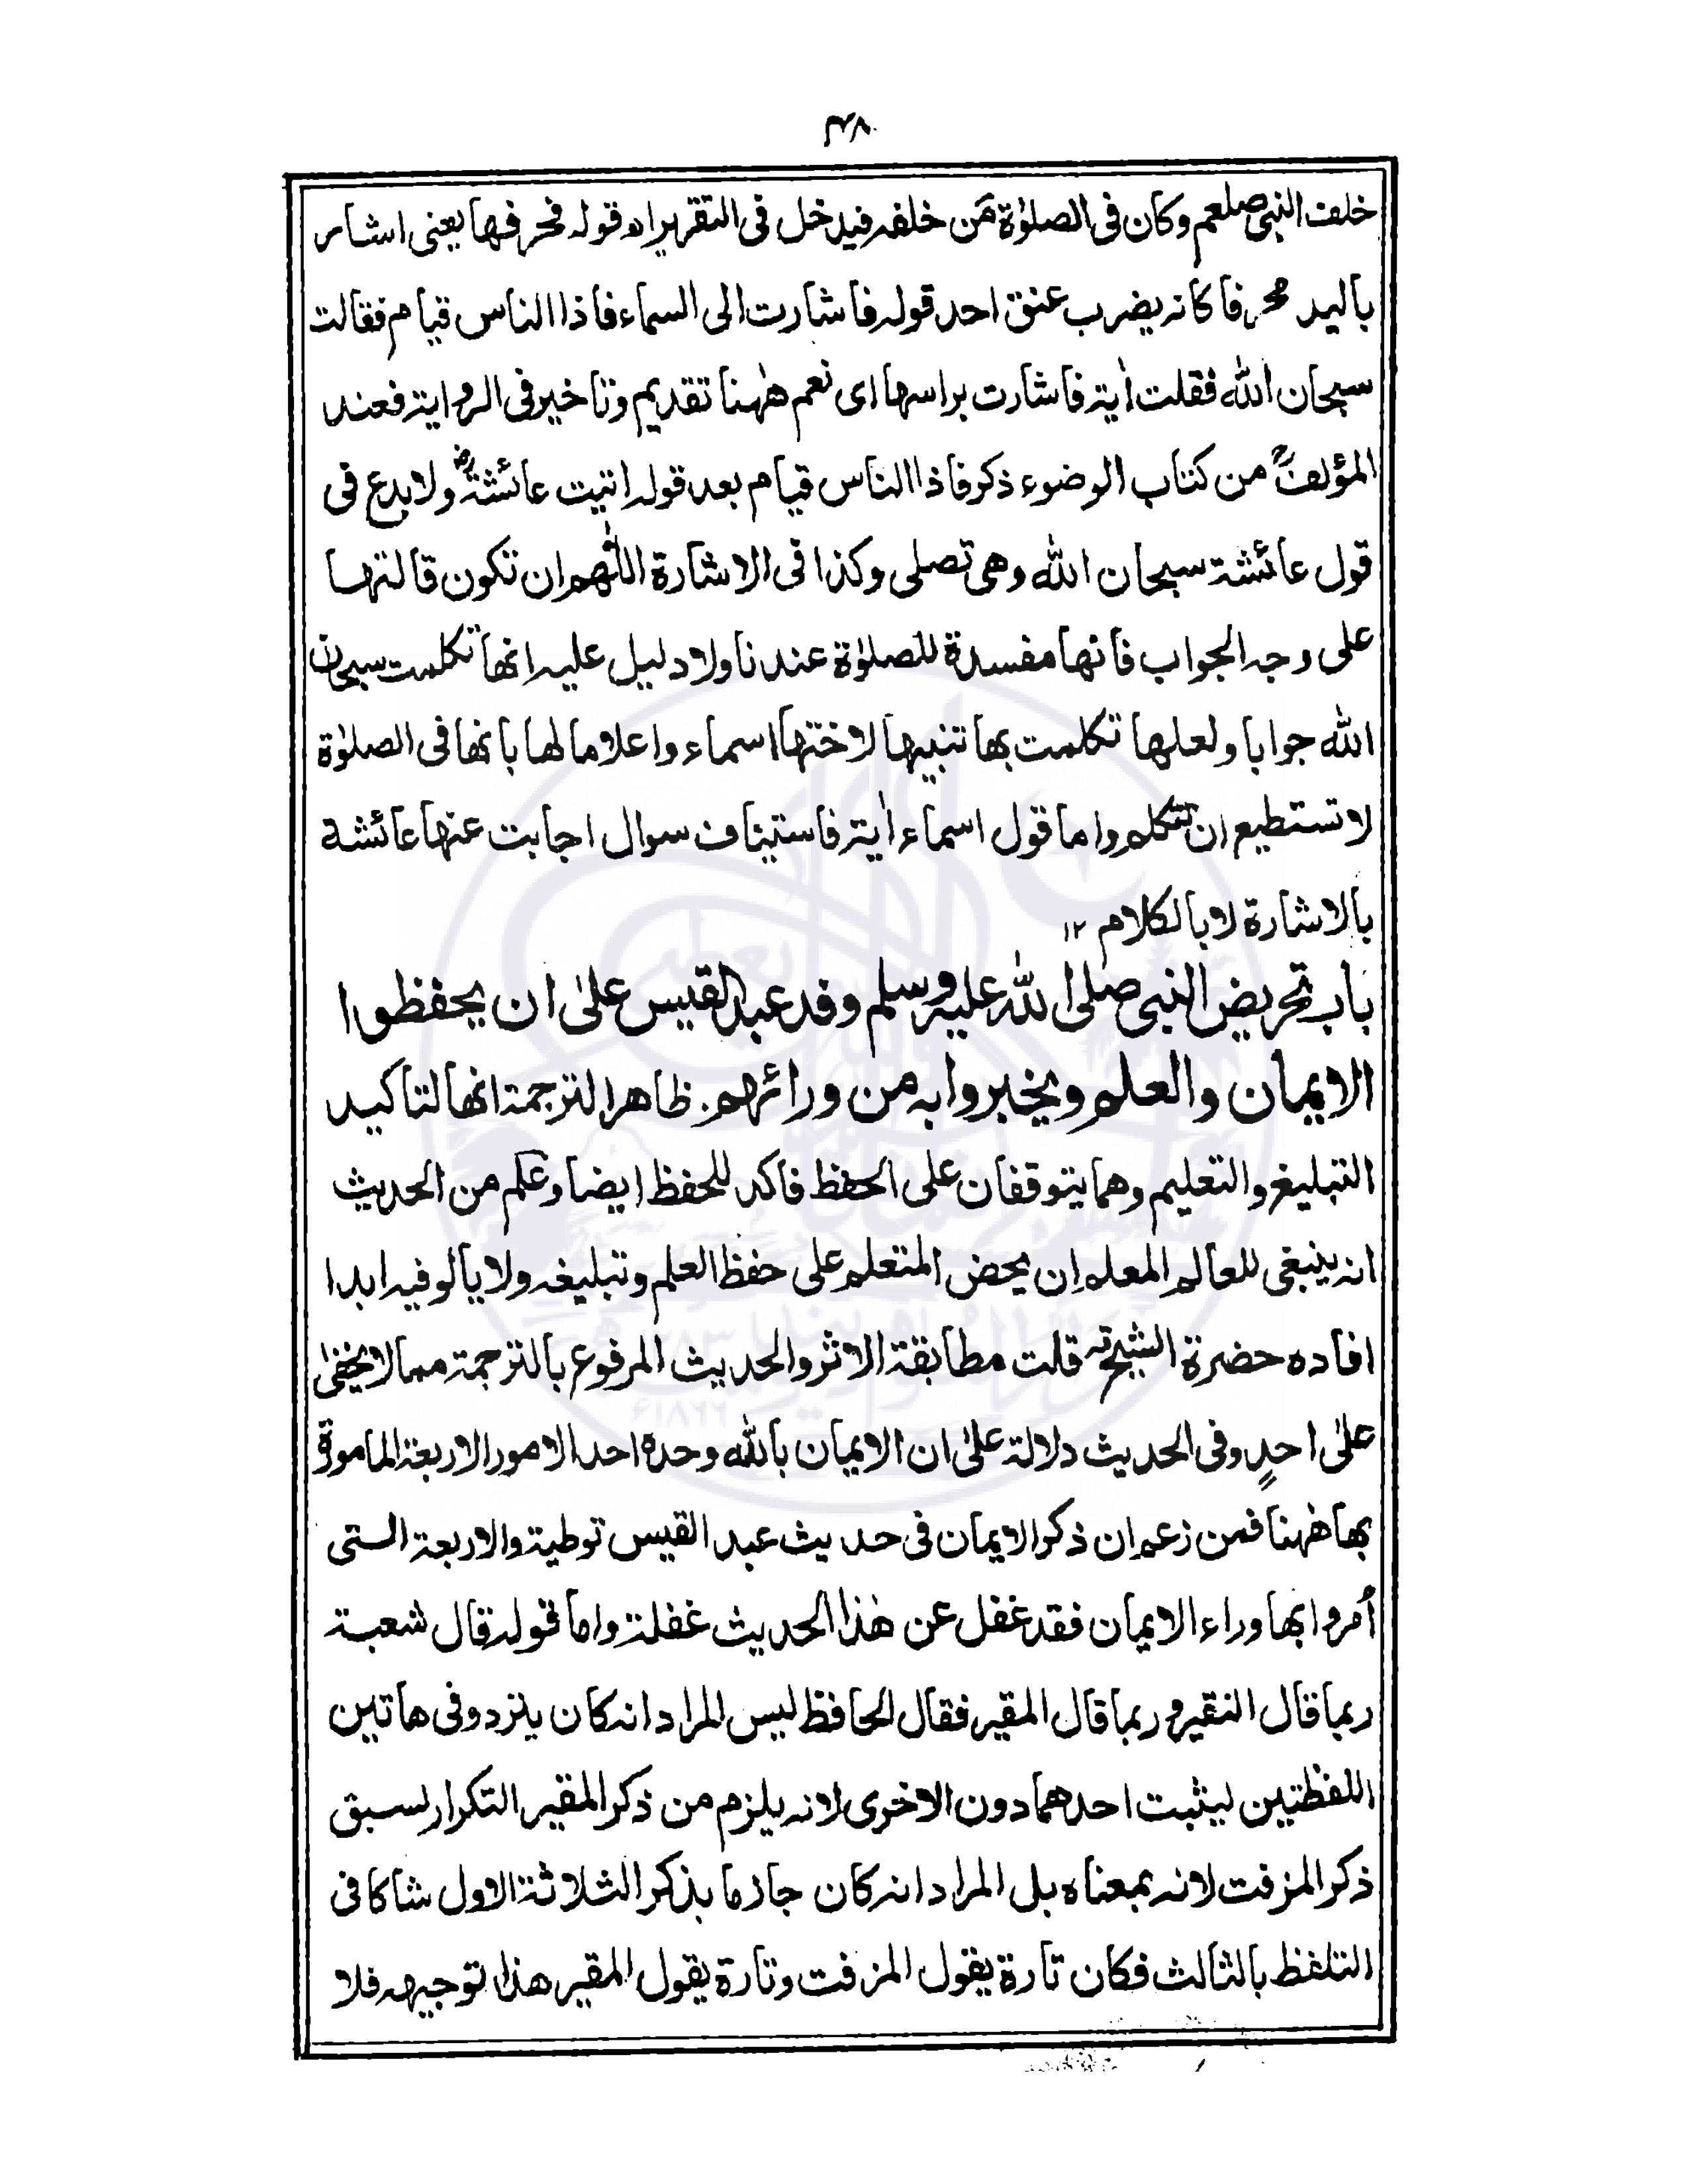 ۴۸
خلف النبی صلعم وکان فی الصلوٰة مَن خلفه فیدخل فی التقریر اه قوله فحرفها یعنی اشار
بالید محرفا کانه یضرب عنق احد قوله فاشارت الی السماء فاذا الناس قیام فقالت
سبحان الله فقلت اٰیة فاشارت براسها ای نعم هٰهنا تقدیم وتاخیر فی الروایة فعند
المؤلفؒ من کتاب الوضوء ذکر فاذا الناس قیام بعد قوله اتیت عائشةؓ ولا بدع فی
قول عائشة سبحان الله وهی تصلی وکذا فی الاشارة اللّٰهم ان تکون قالتها
علی وجه الجواب فانها مفسدة للصلوٰة عندنا ولا دلیل علیه انها تکلمت سبحٰن
الله جوابا ولعلها تکلمت بها تنبیها لاختها اسماء واعلاما لها بانها فی الصلوٰة
لا تستطیع ان تتکلم واما قول اسماء اٰیة فاستیناف سوال اجابت عنها عائشة
بالاشارة لا بالکلام ۱۲
باب تحریض النبی صلی الله علیه وسلم وفد عبد القیس علیٰ ان یحفظوا
الایمان والعلم ویخبروا به من ورائهم. ظاهر الترجمة انها لتاکید
التبلیغ والتعلیم وهما یتوقفان علی الحفظ فاکد للحفظ ایضا وعلم من الحدیث
انه ینبغی للعالم المعلم ان یحض المتعلم علی حفظ العلم وتبلیغه ولا یالو فیه ابدا
افاده حضرة الشیخؒ قلت مطابقة الاثر والحدیث المرفوع بالترجمة مما لا یخفیٰ
علیٰ احدٍ وفی الحدیث دلالة علیٰ ان الایمان بالله وحده احد الامور الاربعة المامورة
بها هٰهنا فمن زعم ان ذکر الایمان فی حدیث عبد القیس توطیة والاربعة التی
اُمروا بها وراء الایمان فقد غفل عن هٰذا الحدیث غفلة واما قوله قال شعبة
ربما قال النقیر و ربما قال المقیر فقال الحافظ لیس المراد انه کان یتردد فی هاتین
اللفظتین لیثبت احدهما دون الاخری لانه یلزم من ذکر المقیر التکرار لسبق
ذکر المزفت لانه بمعناه بل المراد انه کان جازما بذکر الثلاثة الاول شاکا فی
التلفظ بالثالث فکان تارة یقول المزفت وتارة یقول المقیر هذا توجیهه فلا